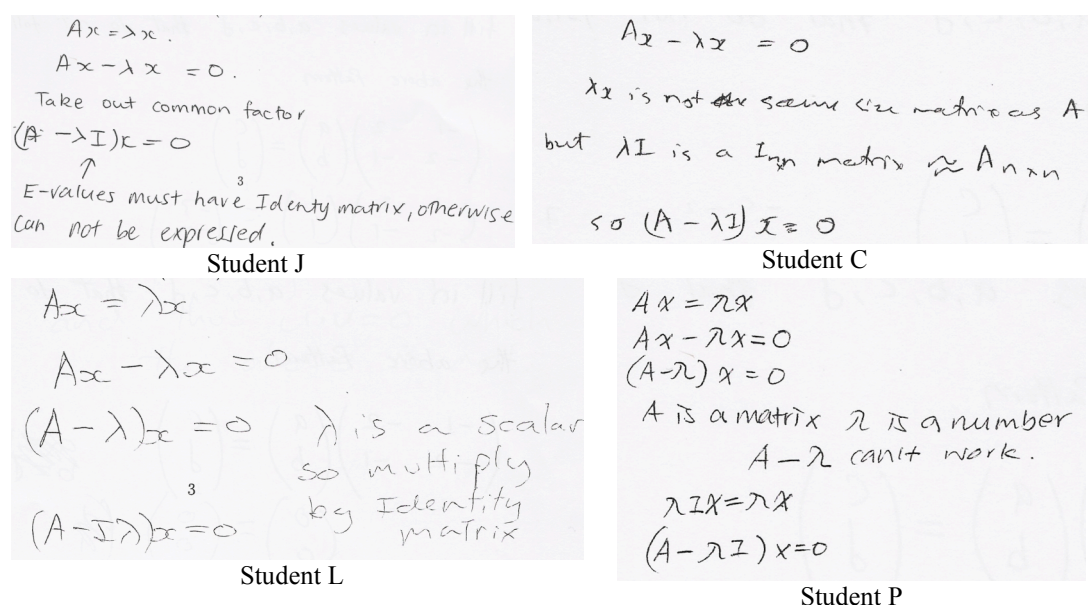 Ax = λx.
Ax - λx = 0.
Take out common factor
(A - λI)x = 0
↑
3
E-values must have Identy matrix, otherwise
can not be expressed.
Student J
Ax - λx = 0
λx is not same size matrix as A
but λI is a Inxn matrix ≈ Anxn
so (A - λI) x = 0
Student C
Ax = λx
Ax - λx = 0
(A - λ)x = 0 λ is a scalar
so multiply
3
by Identity
matrix
(A - Iλ)x = 0
Student L
Ax = λx
Ax - λx = 0
(A - λ) x = 0
A is a matrix λ is a number
A - λ can't work.
λIx = λx
(A - λI) x = 0
Student P